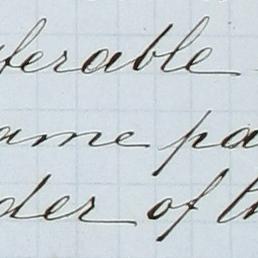 ferable
ame pa
der of th